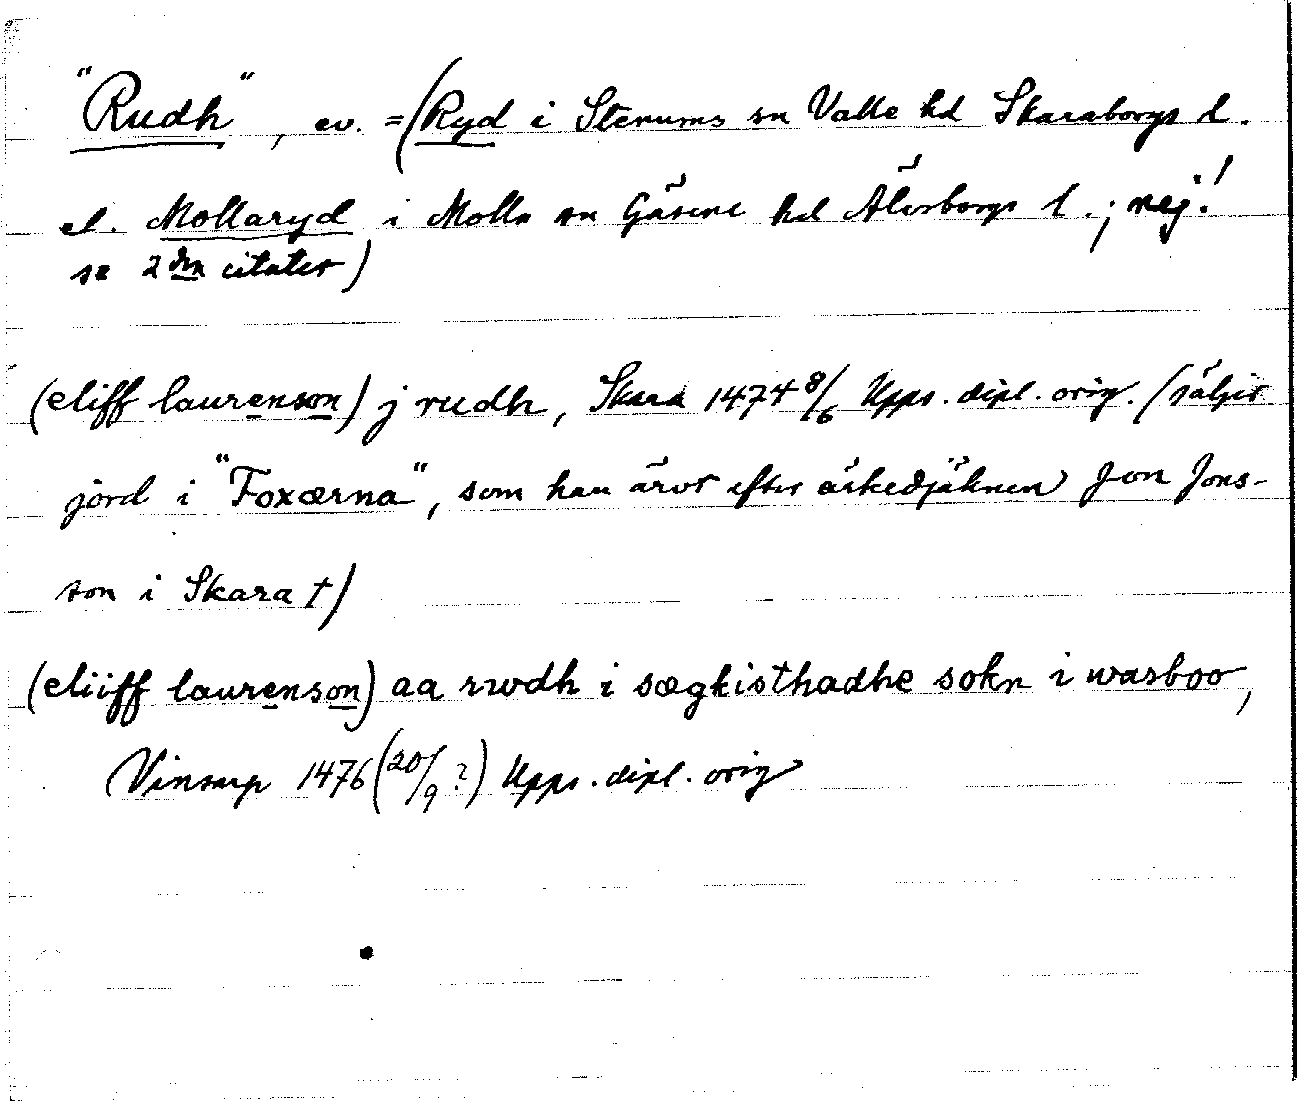 "Rudh", ev. = (Ryd i Stenums sn Valle hd Skaraborgs l.
el. Mollaryd i Molla sn Gäsene hd Älvsborgs l.; nej!
se 2dra citatet)
(eliff laurenson) j rudh, Skara 1474 8/6 Upps. dipl. orig. (säljer
jord i "Foxærna", som han ärvt efter ärkedjäknen Jon Jons-
son i Skara †)
(eliiff laurenson) aa rwdh i sægkisthadhe sokn i wasboo,
Vinsarp 1476 (20/9 ?) Upps. dipl. orig